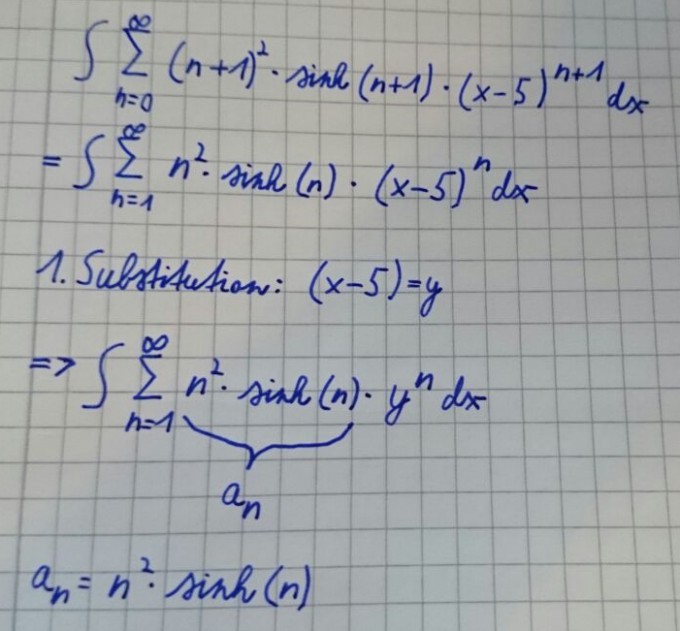 ∫ ∑_{n=0}^{∞} (n+1)² · sinh (n+1) · (x-5)^{n+1} dx
= ∫ ∑_{n=1}^{∞} n² · sinh (n) · (x-5)^n dx
1. Substitution: (x-5)=y
=> ∫ ∑_{n=1}^{∞} n² · sinh (n) · y^n dx
a_n
a_n = n² · sinh (n)